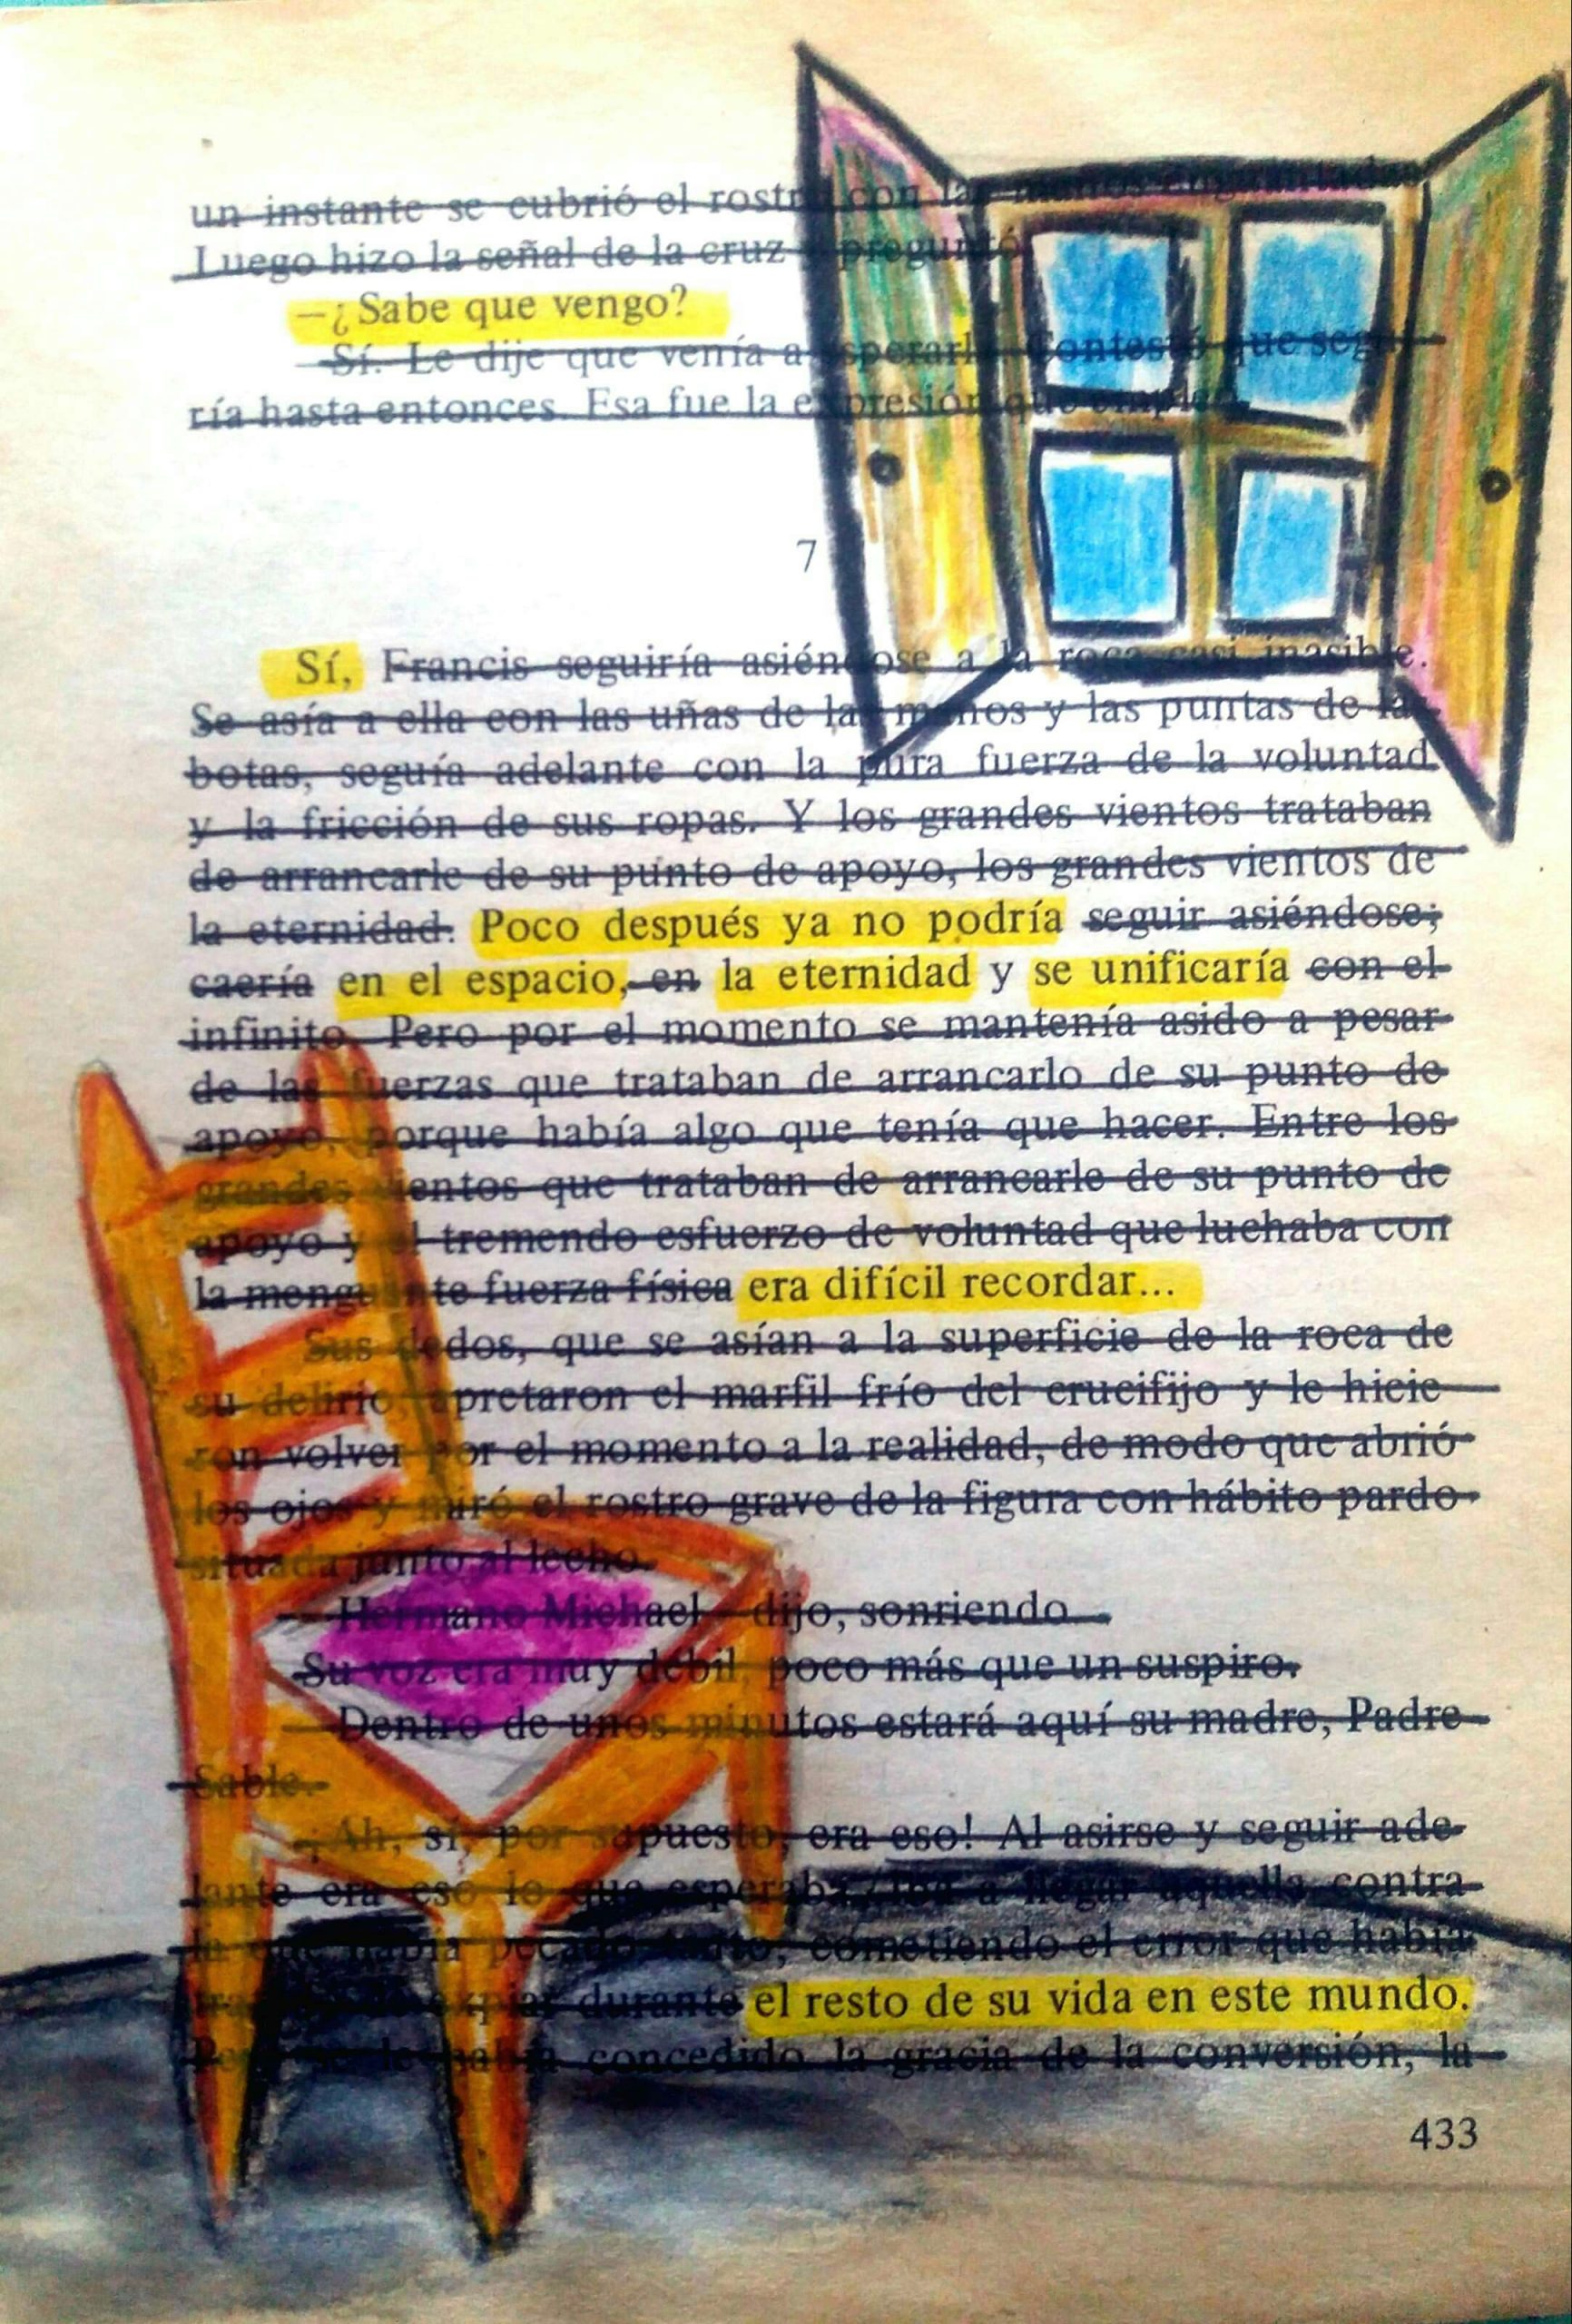 un instante se cubrió el rostro con las manos
Luego hizo la señal de la cruz preguntó
—¿Sabe que vengo?
—Sí. Le dije que venía a esperarle. Contestó que segui-
ría hasta entonces. Esa fue la expresión que empleó.
7
Sí, Francis seguiría asiéndose a la roca casi inasible.
Se asía a ella con las uñas de las manos y las puntas de las
botas, seguía adelante con la pura fuerza de la voluntad
y la fricción de sus ropas. Y los grandes vientos trataban
de arrancarle de su punto de apoyo, los grandes vientos de
la eternidad. Poco después ya no podría seguir asiéndose;
caería en el espacio, en la eternidad y se unificaría con el
infinito. Pero por el momento se mantenía asido a pesar
de las fuerzas que trataban de arrancarlo de su punto de
apoyo, porque había algo que tenía que hacer. Entre los
grandes vientos que trataban de arrancarle de su punto de
apoyo y el tremendo esfuerzo de voluntad que luchaba con
la menguante fuerza física era difícil recordar...
Sus dedos, que se asían a la superficie de la roca de
su delirio, apretaron el marfil frío del crucifijo y le hicie-
ron volver por el momento a la realidad, de modo que abrió
los ojos y miró el rostro grave de la figura con hábito pardo
situada junto al lecho.
—Hermano Michael —dijo, sonriendo—.
Su voz era muy débil, poco más que un suspiro.
—Dentro de unos minutos estará aquí su madre, Padre
Sable.
¡Ah, sí, por supuesto, era eso! Al asirse y seguir ade-
lante era eso lo que esperaba. ¿Iba a llegar aquella contra
la que había pecado tanto, cometiendo el error que había
expiar durante el resto de su vida en este mundo.
había concedido la gracia de la conversión, la
433